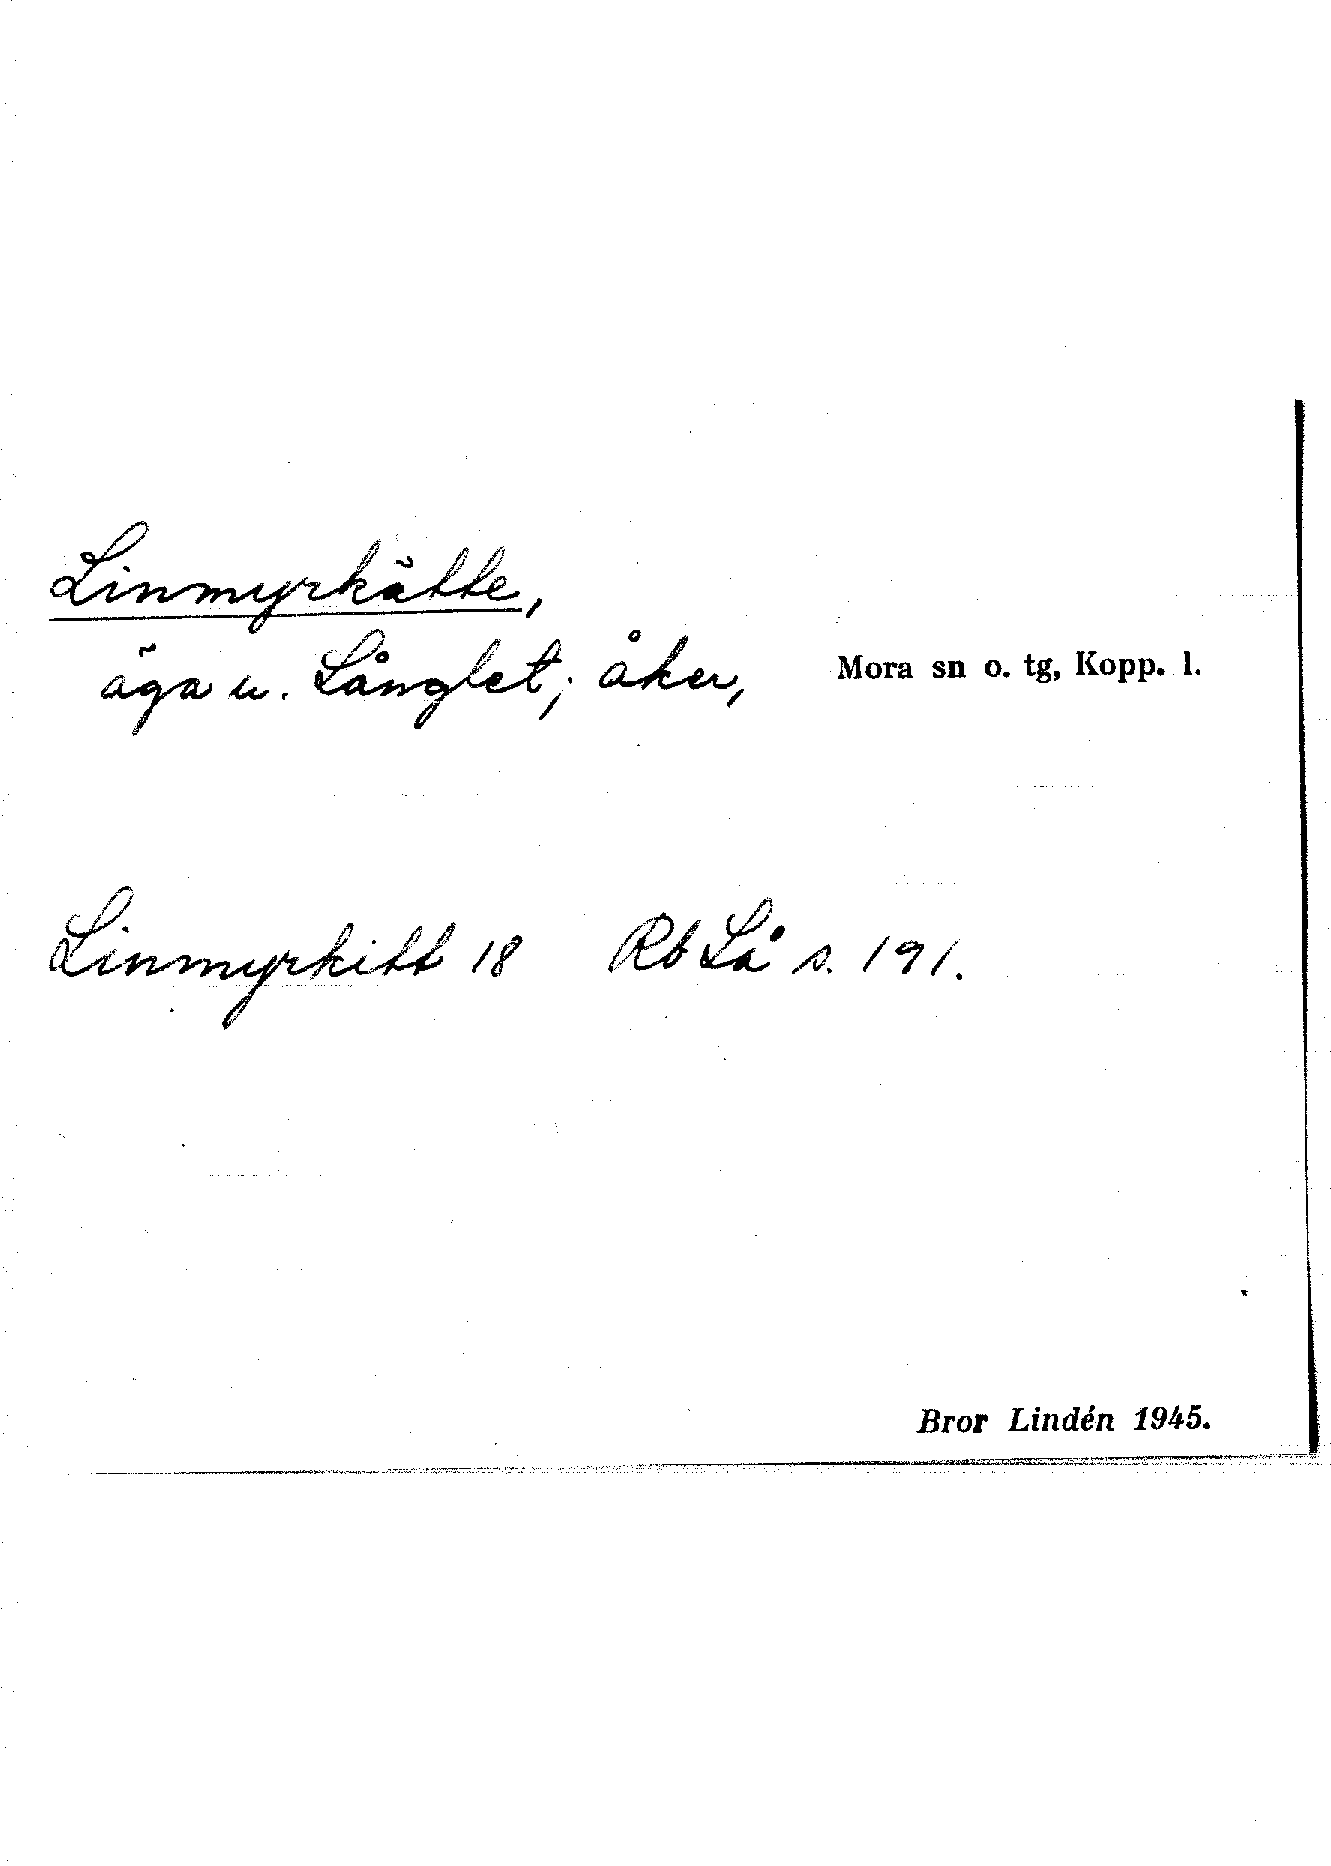 Linmyrkätte,
äga u. Långlet; åker, Mora sn o. tg, Kopp. l.
Linmyrkitt 18 Rb Lå s. 191.
Bror Lindén 1945.